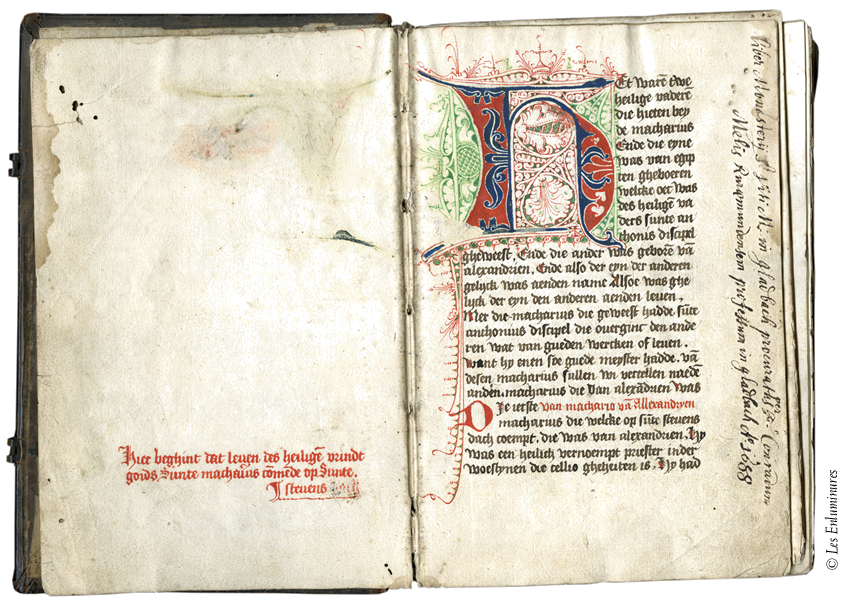 Hier beghint dat leuen des heilighē vrindt
goids Sunte macharius comēde op Sunte.
stevens dach
Het warē twe
heilige vaderē
die hieten bey
de macharius
Ende die eyne
was van egip
ten gheboeren
welcke oec was
des heiligē va
ders sunte an
thonis discipel
gheweest, Ende die ander was geborē vā
alexandrien, Ende also der eyn der anderen
gelijck was aenden name Alsoe was ghe
lijck der eyn den anderen aenden leuen,
Mer die macharius die geweest hadde sūte
anthonius discipel die ouerginc den ande
ren wat van gueden wercken of leuen.
want hy enen soe guede meyster hadde. vā
desen macharius sullen wi vertellen naede
anden macharius die van alexādrien was
Die ierste van machario vā Alexandryen
macharius die welcke op sūte stevens
dach coempt, die was van alexandrien. Hy
was een heilich vernoempt priester in der
woestynen die cellio gheheiten is. Hy had
Liber Monasterij S. Viti M. in gladbach procuratus per Conradum
Mehs Ruremundensem professum in gladbach Aº 1688
© Les Enluminures